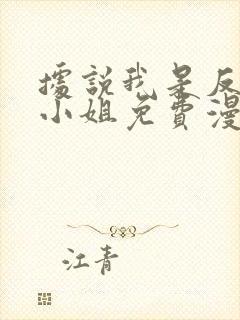 據說我是反
小姐免費漫
江青